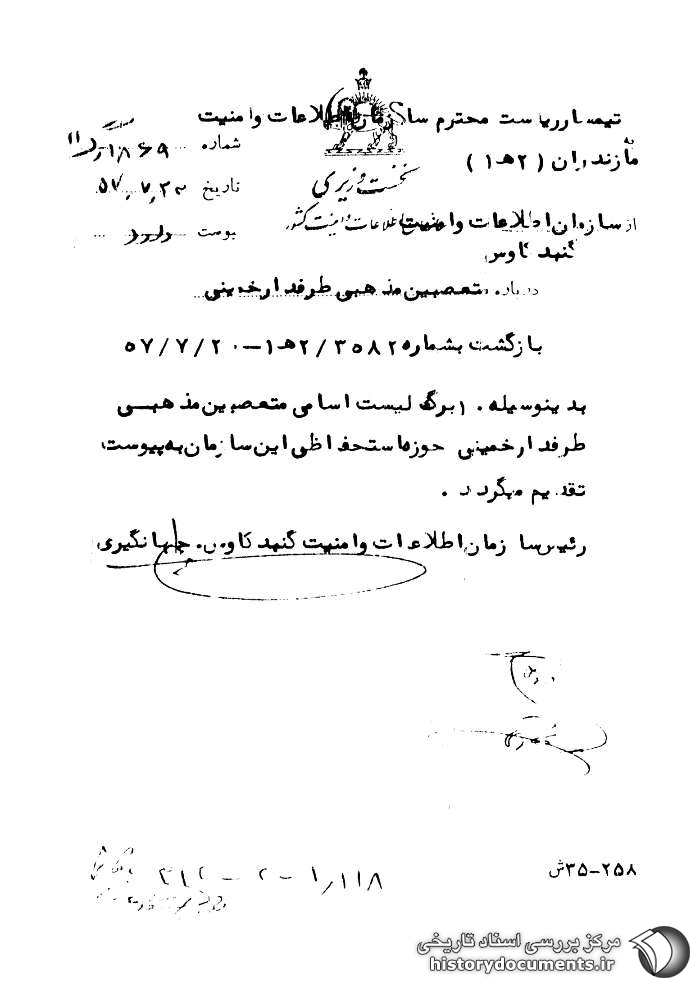 تیمسار ریاست محترم سازمان اطلاعات و امنیت
به
مازندران ( ۲ هـ ۱ )
نخست وزیری
سازمان اطلاعات و امنیت کشور
شماره ۱۸۶۹
تاریخ ۵۷٫۷٫۲۳
پیوست دارد
از سازمان اطلاعات و امنیت
گنبد کاوس
درباره متعصبین مذهبی طرفدار خمینی
بازگشت بشماره ۳۵۸۲/۲ هـ ۱ – ۵۷/۷/۲۰
بدینوسیله ۱ برگ لیست اسامی متعصبین مذهبی
طرفدار خمینی حوزه استحفاظی این سازمان به پیوست
تقدیم میگردد .
رئیس سازمان اطلاعات و امنیت گنبد کاوس . جهانگیری
۳۱۲ – ۲ – ۱٫۱۱۸
۳۵–۲۵۸ش
مرکز بررسی اسناد تاریخی
historydocuments.ir